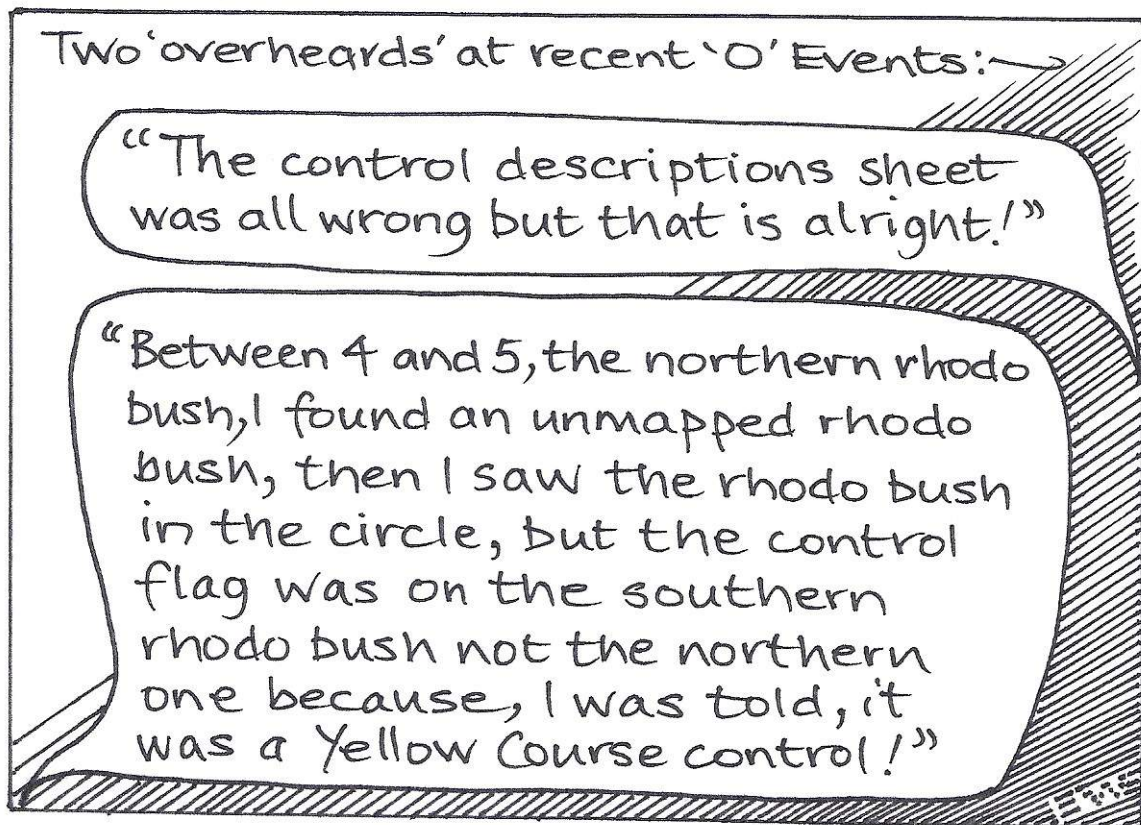 Two 'overheards' at recent 'O' Events:~
"The control descriptions sheet
was all wrong but that is alright!"
"Between 4 and 5, the northern rhodo
bush, I found an unmapped rhodo
bush, then I saw the rhodo bush
in the circle, but the control
flag was on the southern
rhodo bush not the northern
one because, I was told, it
was a Yellow Course control!"